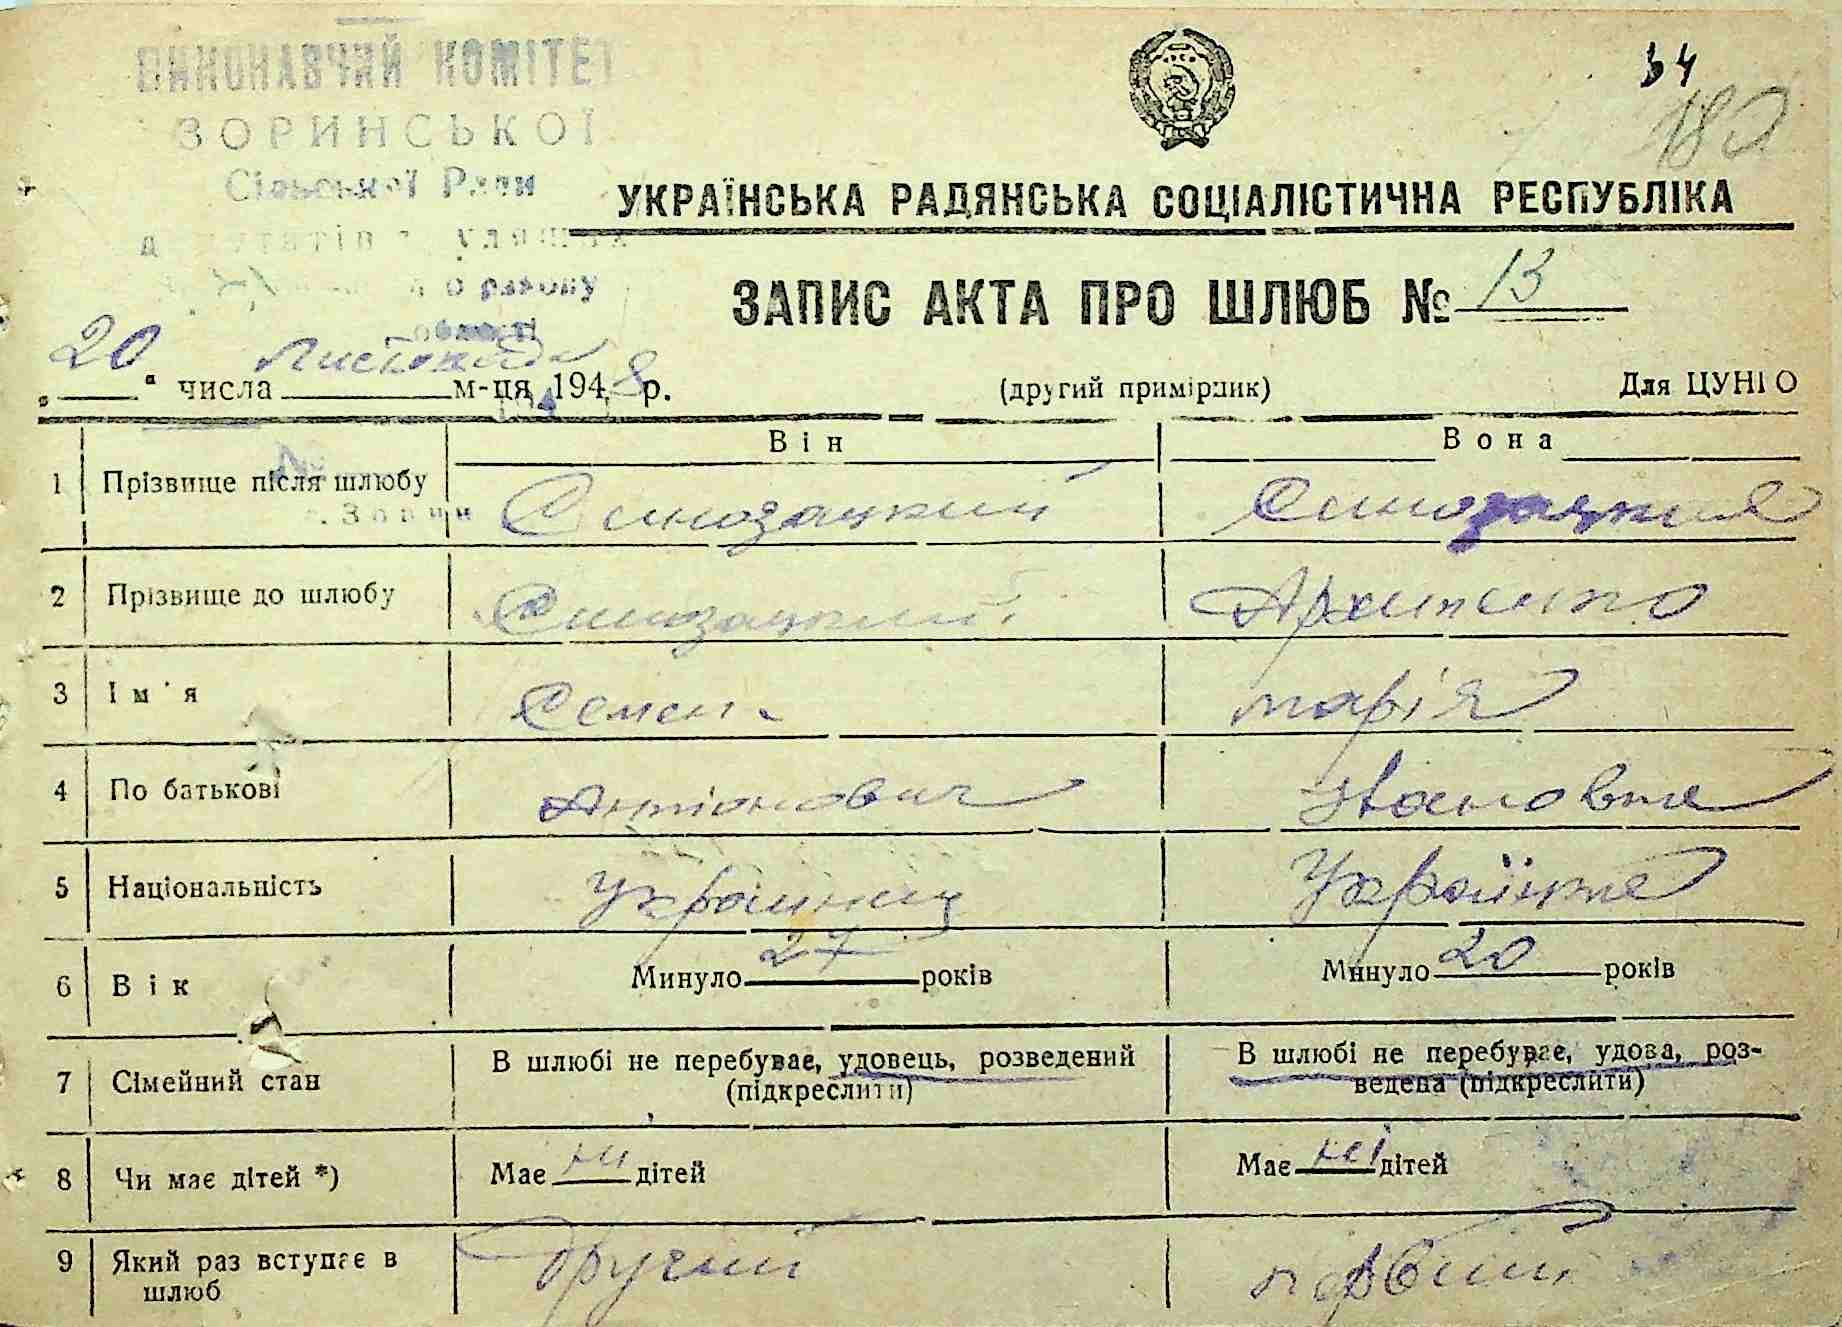 ВИКОНАВЧИЙ КОМІТЕТ
ЗОРИНСЬКОЇ
Сільської Ради
34
180
УКРАЇНСЬКА РАДЯНСЬКА СОЦІАЛІСТИЧНА РЕСПУБЛІКА
району
області
ЗАПИС АКТА ПРО ШЛЮБ № 13
„20“ числа Листопада м-ця 1948 р. (другий примірник) Для ЦУНГО
Він Вона
1 Прізвище після шлюбу Синозацкий Синозацкия
2 Прізвище до шлюбу Синозацкий
3 Ім'я Семен Марія
4 По батькові Антіонович Івановна
5 Національність Украинец Українка
6 Вік Минуло 27 років Минуло 20 років
7 Сімейний стан В шлюбі не перебуває, удовець, розведений (підкреслити) В шлюбі не перебуває, удова, роз-
ведена (підкреслити)
8 Чи має дітей *) Має ни дітей Має неі дітей
9 Який раз вступає в шлюб другий первий